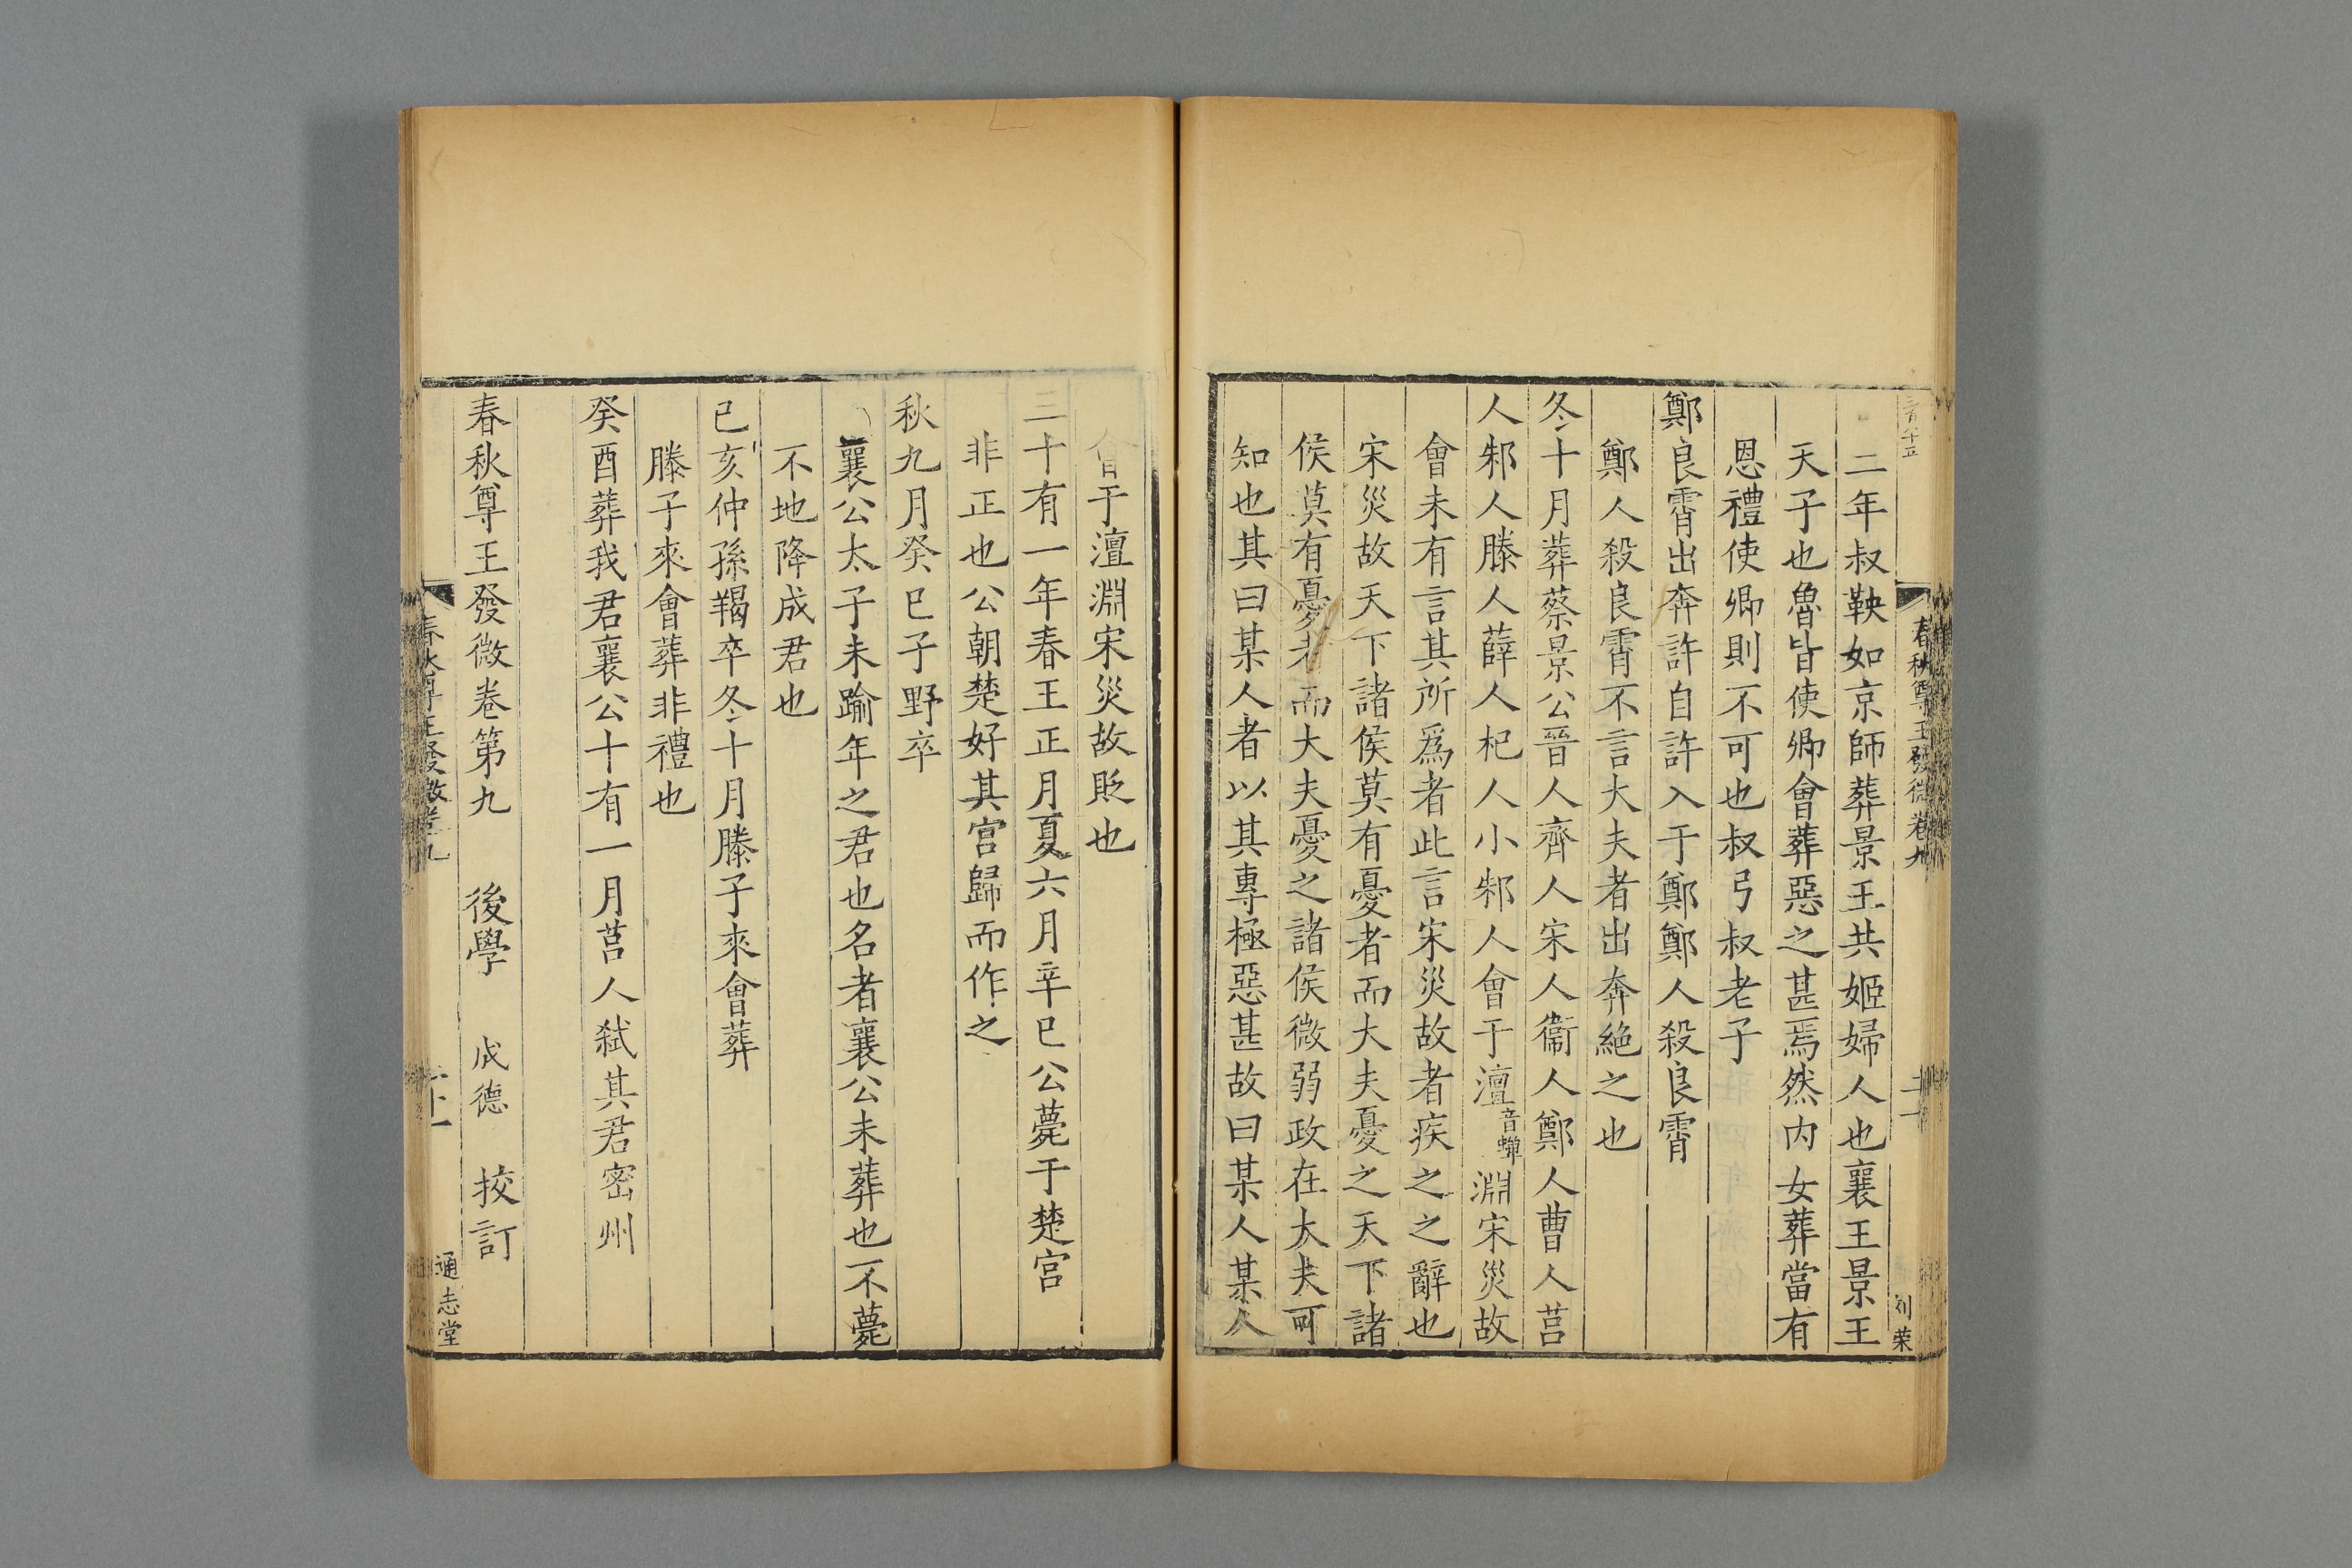 三百八十五
春秋尊王發微卷九
二十一
刘荣
二年叔鞅如京師葬景王共姬婦人也襄王景王
天子也魯皆使卿會葬惡之甚焉然内女葬當有
恩禮使卿則不可也叔弓叔老子
鄭良霄出奔許自許入于鄭鄭人殺良霄
鄭人殺良霄不言大夫者出奔絶之也
冬十月葬蔡景公晉人齊人宋人衞人鄭人曹人莒
人邾人滕人薛人杞人小邾人會于澶音蟬淵宋災故
會未有言其所爲者此言宋災故者疾之之辭也
宋災故天下諸侯莫有憂者而大夫憂之天下諸
侯莫有憂者而大夫憂之諸侯微弱政在大夫可
知也其曰某人者以其專極惡甚故曰某人某人
會于澶淵宋災故貶也
三十有一年春王正月夏六月辛巳公薨于楚宫
非正也公朝楚好其宫歸而作之
秋九月癸巳子野卒
襄公太子未踰年之君也名者襄公未葬也不薨
不地降成君也
已亥仲孫羯卒冬十月滕子來會葬
滕子來會葬非禮也
癸酉葬我君襄公十有一月莒人弑其君密州
春秋尊王發微卷第九 後學 成德 挍訂
春秋尊王發微卷九
二十一
通志堂